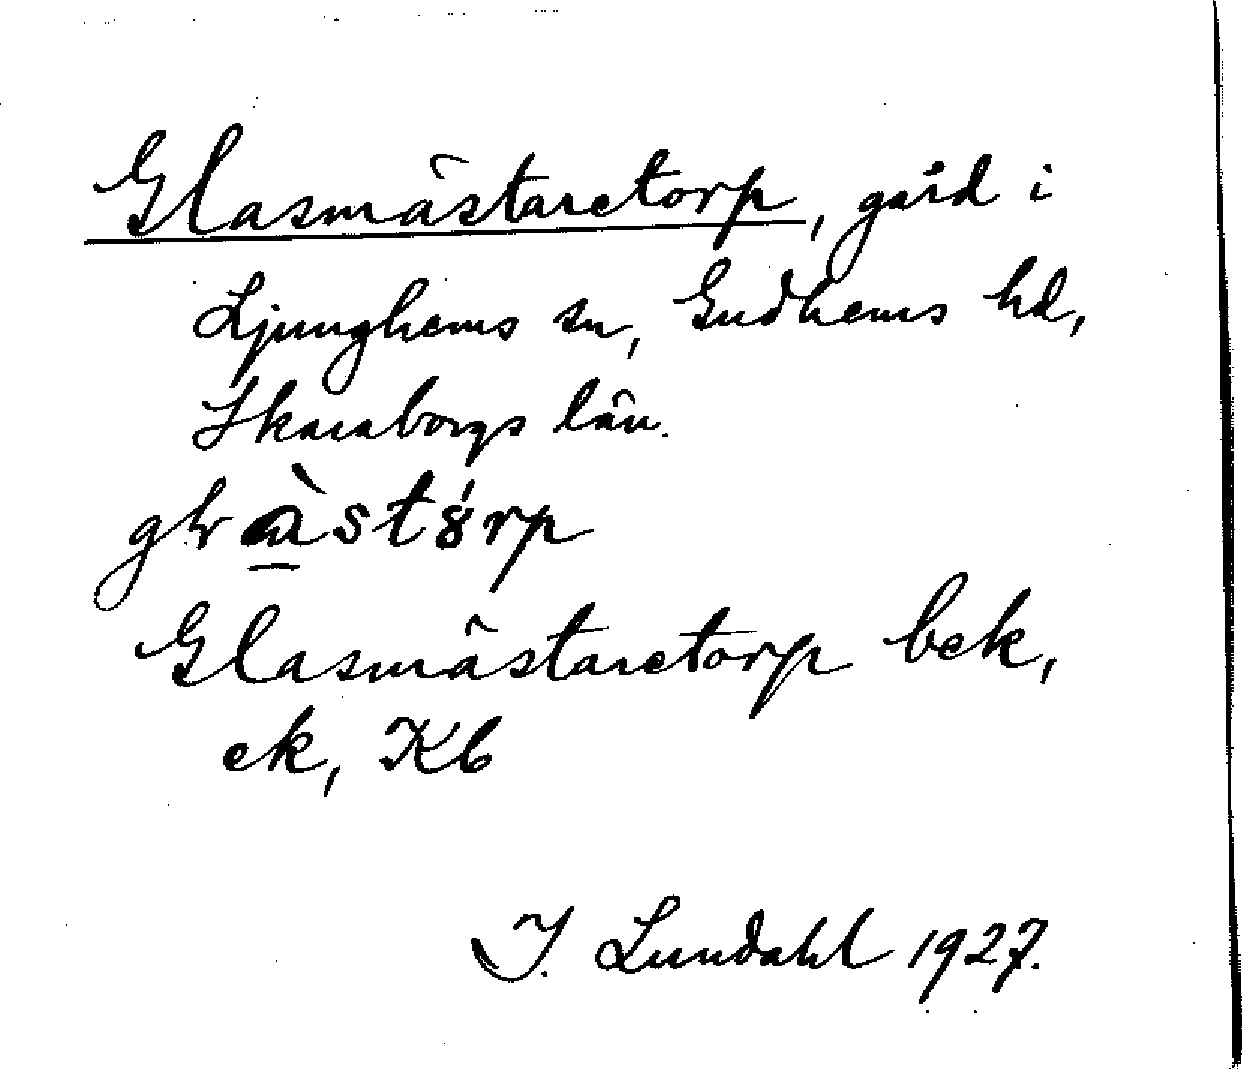 Glasmästaretorp, gård i
Ljunghems sn, Gudhems hd,
Skaraborgs län.
Glasmästaretorp bek,
ek, Kb
I. Lundahl 1927.